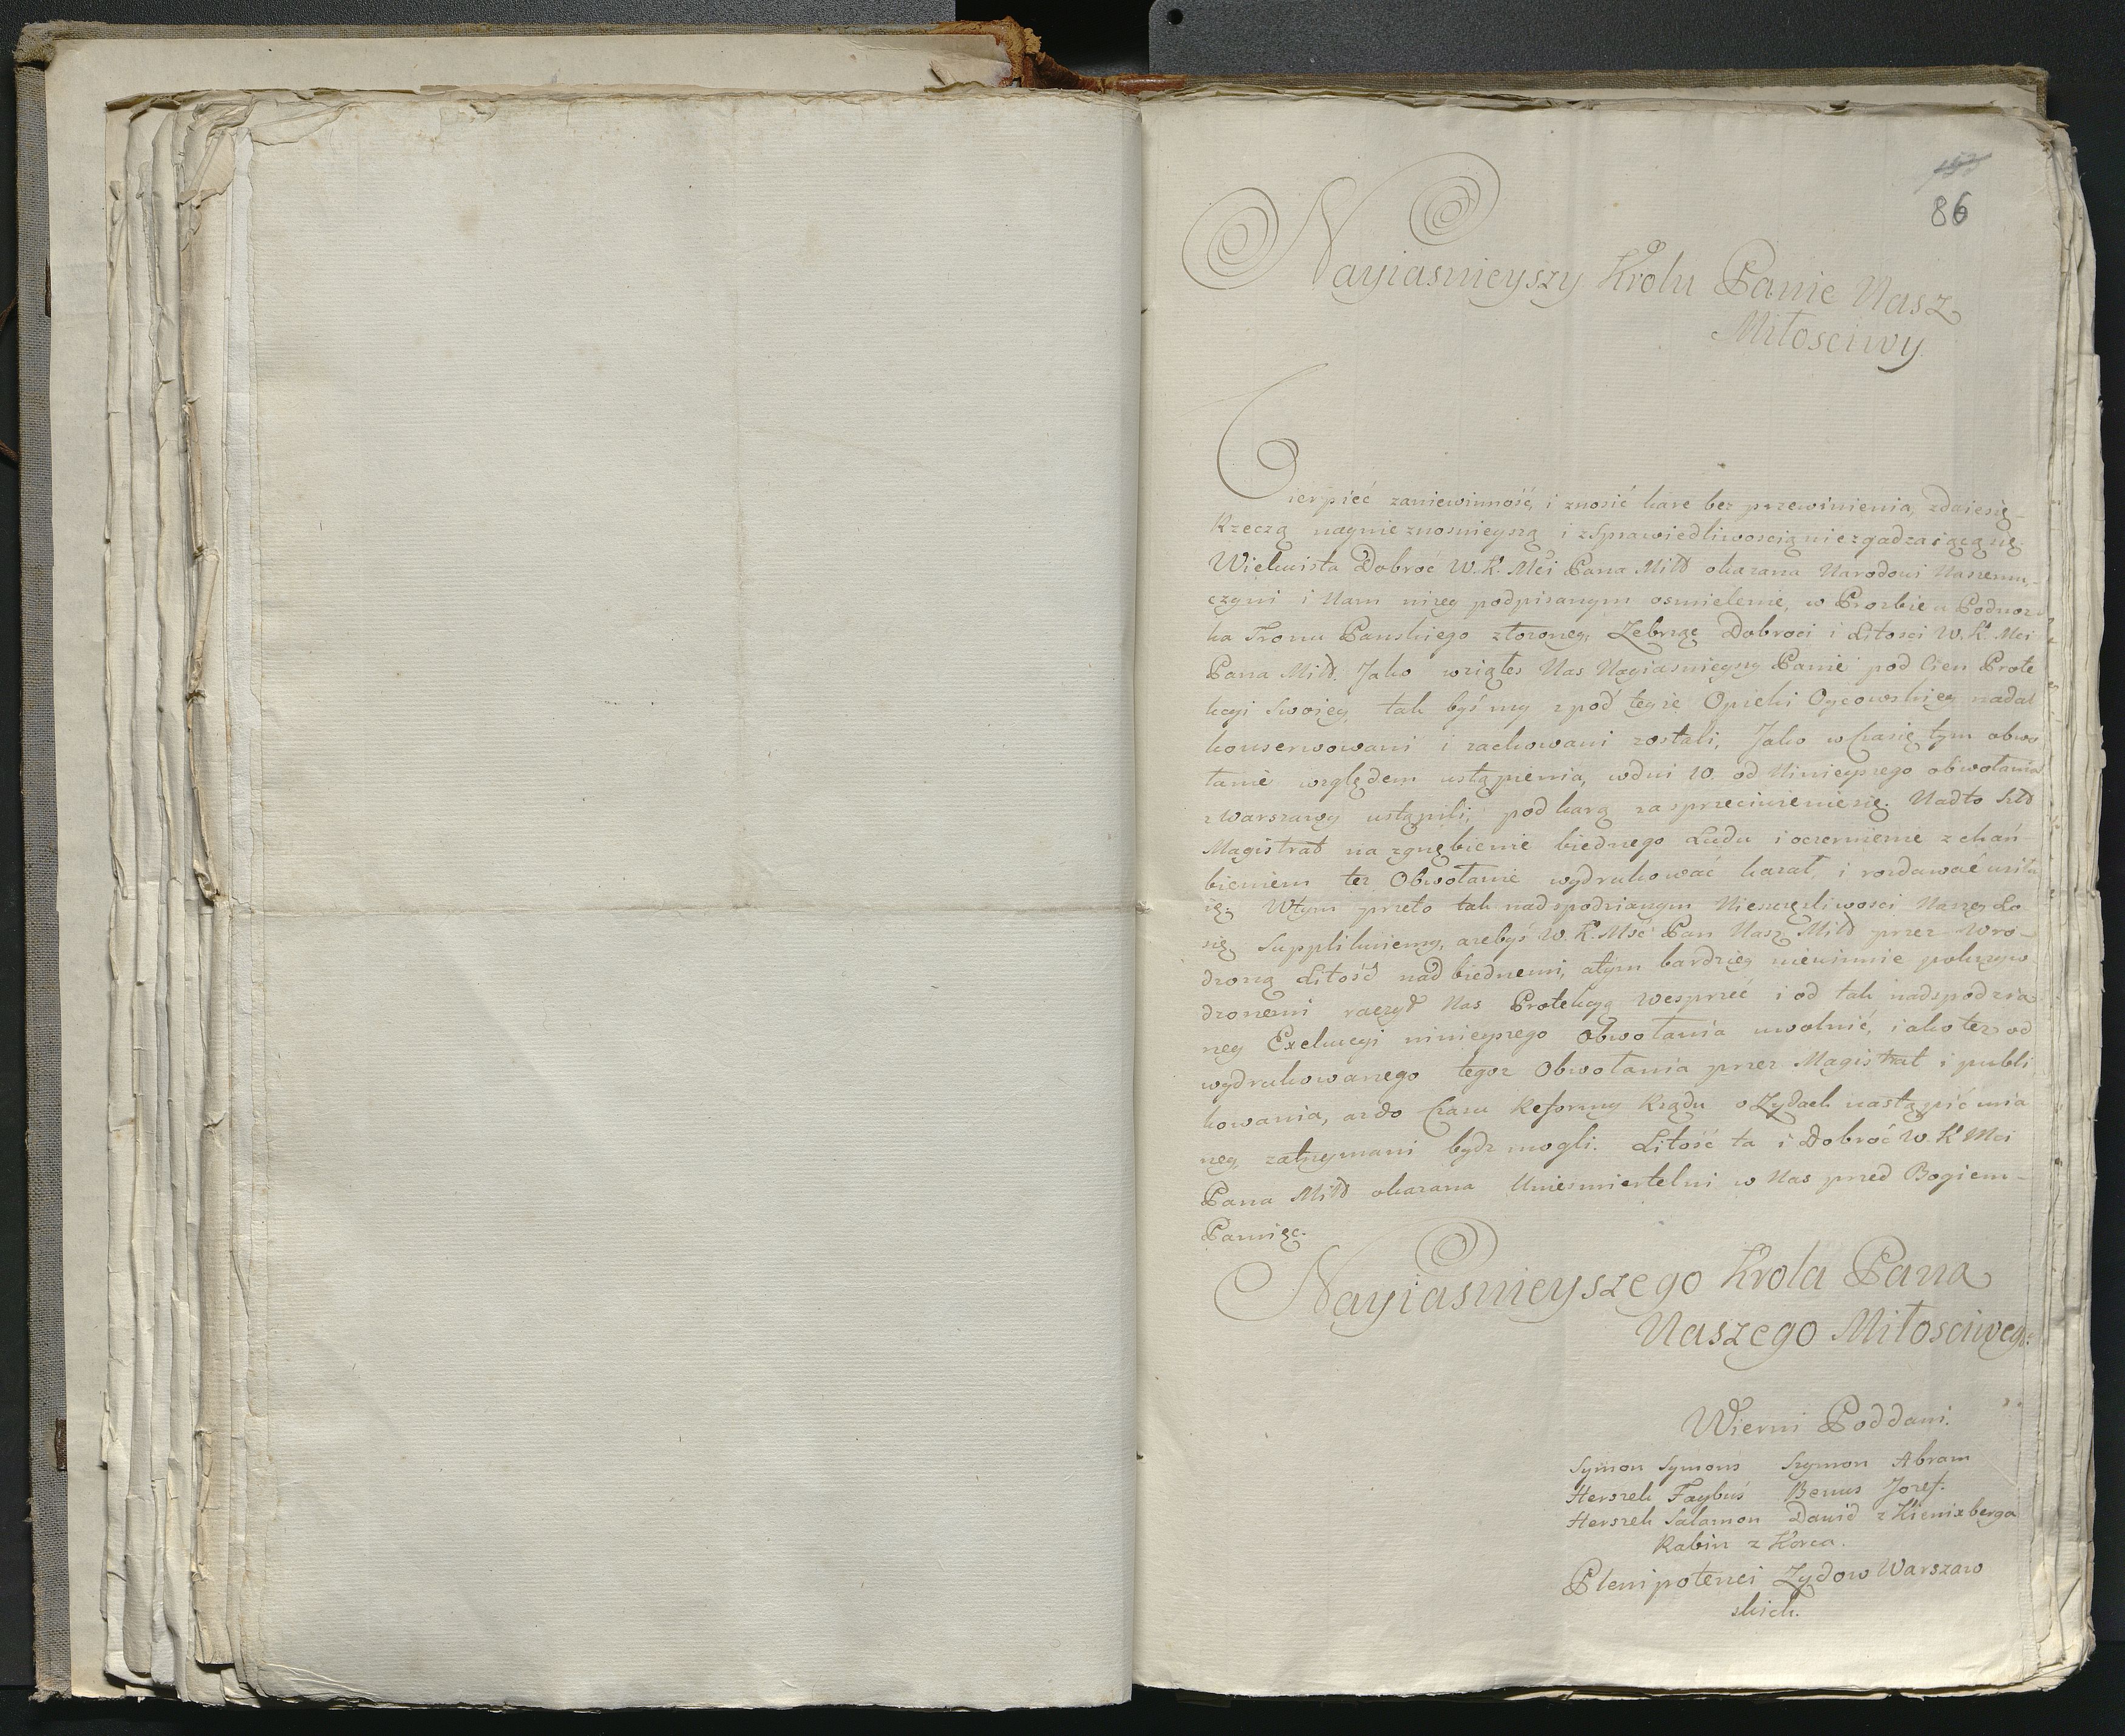 86
Nayiasnieyszy Krolu Panie Nasz
Miłosciwy
Cierpieć zaniewinność, i znosić kare bez przewinienia, zdaiesię
Rzeczą naynieznosnieyszą i zSprawiedliwoscią niezgadzaiącąsię.
Wiekuista Dobroć W. K. Mci Pana Miłð okazana Narodowi Naszemu,
czyni i Nam niżey podpisanym osmielenie, w Prozbie u Podnoż-
ka Tronu Panskiego złożoney, Żebrzę Dobroci i Litosci W. K. Mci
Pana Miłð. Jako wziąłes Nas Nayiasnieyszy Panie pod Cien Prote
kcyi Swoiey, tak byśmy zpod teyże Opieki Oycowskiey nadal
konserwowani i zachowani zostali, Jako wCzasię tym obwo
łanie względem ustąpienia, wdni 10. od Ninieyszego obwołania
zWarszawy ustąpili, pod karą zasprzeciwieniesię. Nadto
Magistrat na zgnębienie biednego Ludu i oczernienie zchań-
bieniem też Obwołanie wydrukować kazał, i rozdawać usiłu
ię. Wtym przeto tak nadspodzianym Nieszczęsliwosci Naszey Lo
się Supplikuiemy, ażebyś W. K. Mść Pan Nasz Miłð przez Wro-
dzoną Litość nad biednemi, atym bardziey niewinnie pokrzyw
dzonemi raczył Nas Protekcyą wesprzeć i od tak nadspodzia
ney Exekucyi ninieyszego Obwołania uwolnić, iakoteż od
wydrukowanego tegoż Obwołania przez Magistrat i publi
kowania, ażdo Czasu Reformy Rządu oŻydach nastąpić mia
ney, zatrzymani bydz mogli. Litość ta i Dobroć W. K. Mci
Pana Miłð okazana Uniesmiertelni w Nas przed Bogiem
Pamięc.
Nayiasnieyszego Krola Pana
Naszego Miłosciweg:
Wierni Poddani.
Symon Symons Szymon Abram
Herszek Faybuś Benus Jozef.
Herszek Salamon Dawid z Kienixberga
Rabin z Korca.
Plenipotenci Zydow Warszaw
skich.